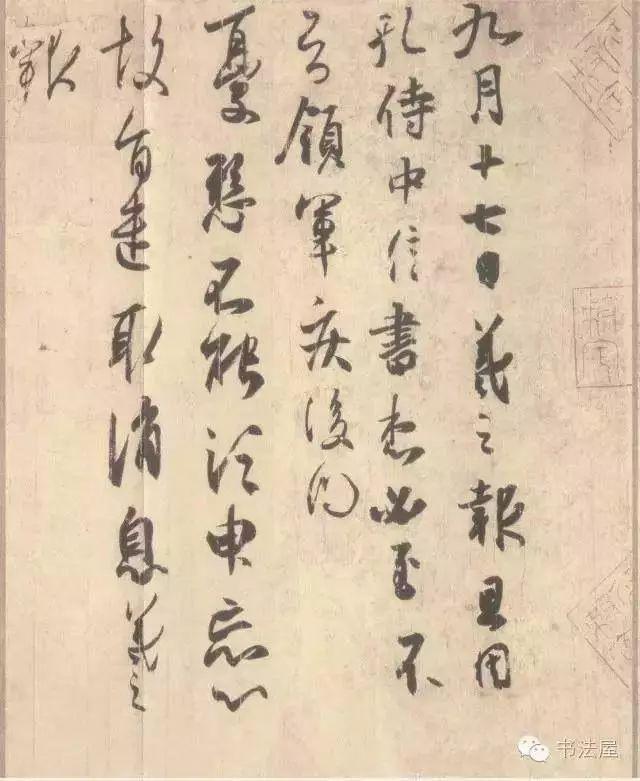 九月十七日羲之報且因
孔侍中信書想必至不
知領軍疾後問
憂懸不能須臾忘心
故旨遣取消息羲之
報
书法屋